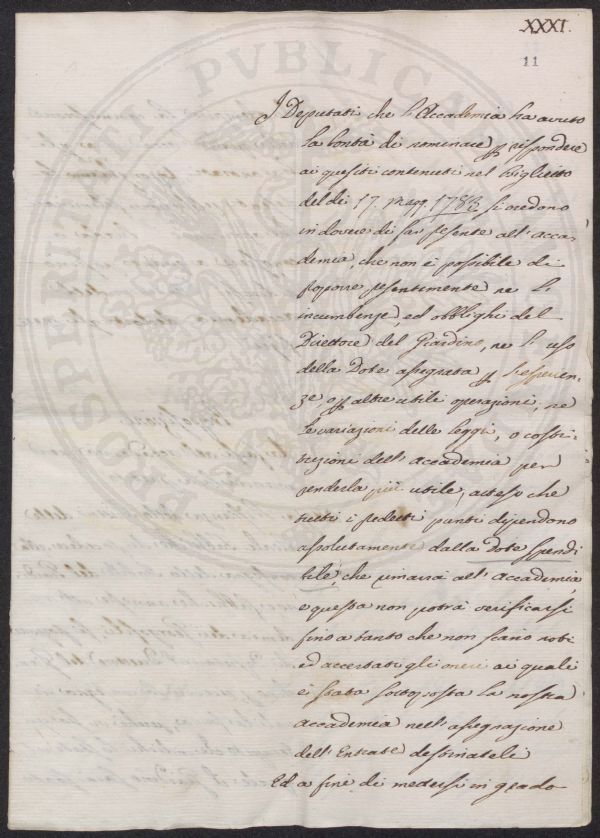 XXXI.
11
I Deputati che l'Accademia ha avuto
la bontà di nominare p rispondere
ai quesiti contenuti nel Biglietto
del dì 17. Magg. 1783, si credono
in dovere di far psente all'Acca-
demia, che non è possibile di
pporre psentimente ne l'
incumbenze, ed obblighi del
Direttore del Giardino, ne l'uso
della Dote assegnata p l'esperien-
ze o p altre utile operazioni, ne
le variazioni delle Leggi, o costi-
tuzioni dell'Accademia per
renderla più utile, atteso che
tutti i pdetti punti dipendono
assolutamente dalla Dote spendi
bile, che rimarrà all'Accademia,
e questa non potrà verificarsi
fino a tanto che non siano noti
ed accertati gli oneri ai quali
è stata sottoposta la nostra
Accademia nell'assegnazione
dell'Entrate destinateli
Ed a fine di mettersi in grado
PROSPERITATI PUBLICAE